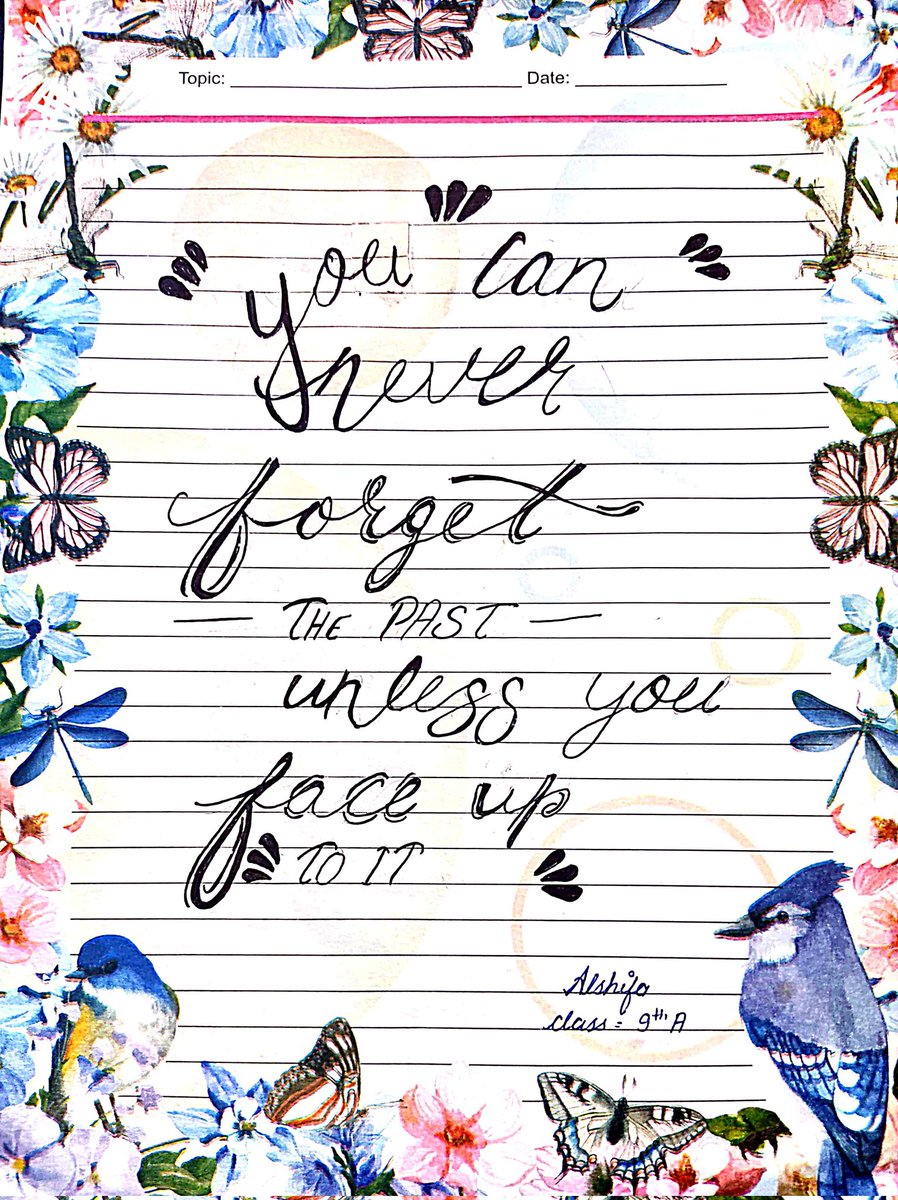 Topic: Date:
you can
never
forget
— THE PAST —
unless you
face up
TO IT
Alshifa
class = 9th A